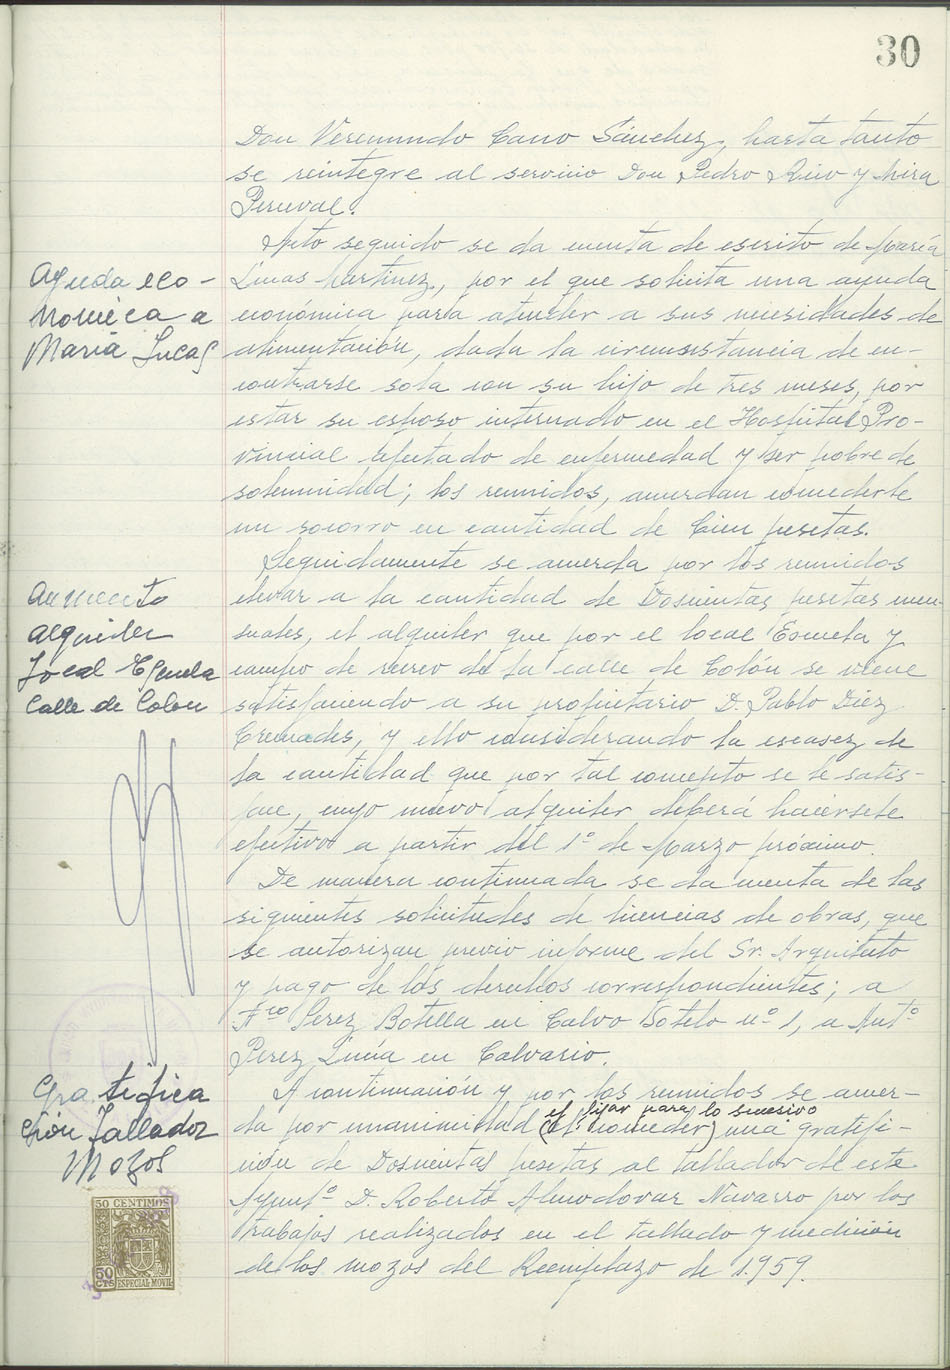 30
Don Veremundo Cano Sánchez, hasta tanto
se reintegre al servicio Don Pedro Rico y Mira
Perceval.
Acto seguido se da cuenta de escrito de María
Ayuda eco-
nomica a
Maria Lucas
Lucas Martinez, por el que solicita una ayuda
económica para atender a sus necesidades de
alimentación, dada la circunstancia de en-
contrarse sola con su hijo de tres meses, por
estar su esposo internado en el Hospital Pro-
vincial afectado de enfermedad y ser pobre de
solemnidad; los reunidos, acuerdan concederle
un socorro en cantidad de Cien pesetas.
Seguidamente se acuerda por los reunidos
Aumento
alquiler
Local Escuela
Calle de Colon
elevar a la cantidad de Doscientas pesetas men-
suales, el alquiler que por el local Escuela y
campo de recreo de la calle de Colón se viene
satisfaciendo a su propietario D. Pablo Diez
Cremades, y ello considerando la escasez de
la cantidad que por tal concepto se le satis-
face, cuyo nuevo alquiler deberá hacérsele
efectivo a partir del 1º de Marzo próximo.
De manera continuada se da cuenta de las
siguientes solicitudes de licencias de obras, que
se autorizan previo informe del Sr. Arquitecto
y pago de los derechos correspondientes; a
Fco Perez Botella en Calvo Sotelo nº 1, a Antº
Perez Lucía en Calvario.
Gratifica
ción Tallador
Mozos
A continuación y por los reunidos se acuer-
el fijar para lo sucesivo
da por unanimidad (el conceder) una gratifi-
ción de Doscientas pesetas al tallador de este
Ayuntº D. Roberto Almodovar Navarro por los
trabajos realizados en el tallado y medición
de los mozos del Reemplazo de 1.959.
50 CENTIMOS
50
CTS
ESPECIAL MOVIL